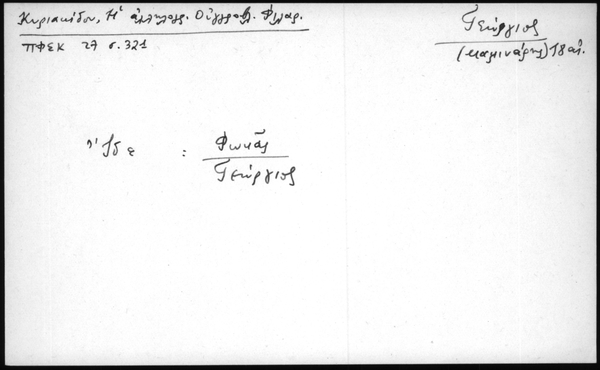 Κυριακίδου, Ἡ ἀλληλογρ. Οὐγγροβλ. Φιλαρ.
ΠΦΣΚ 27 σ. 321
Γεώργιος
(καμινάρης) 18 αἰ.
Ἴδε : Φωκᾶς
Γεώργιος